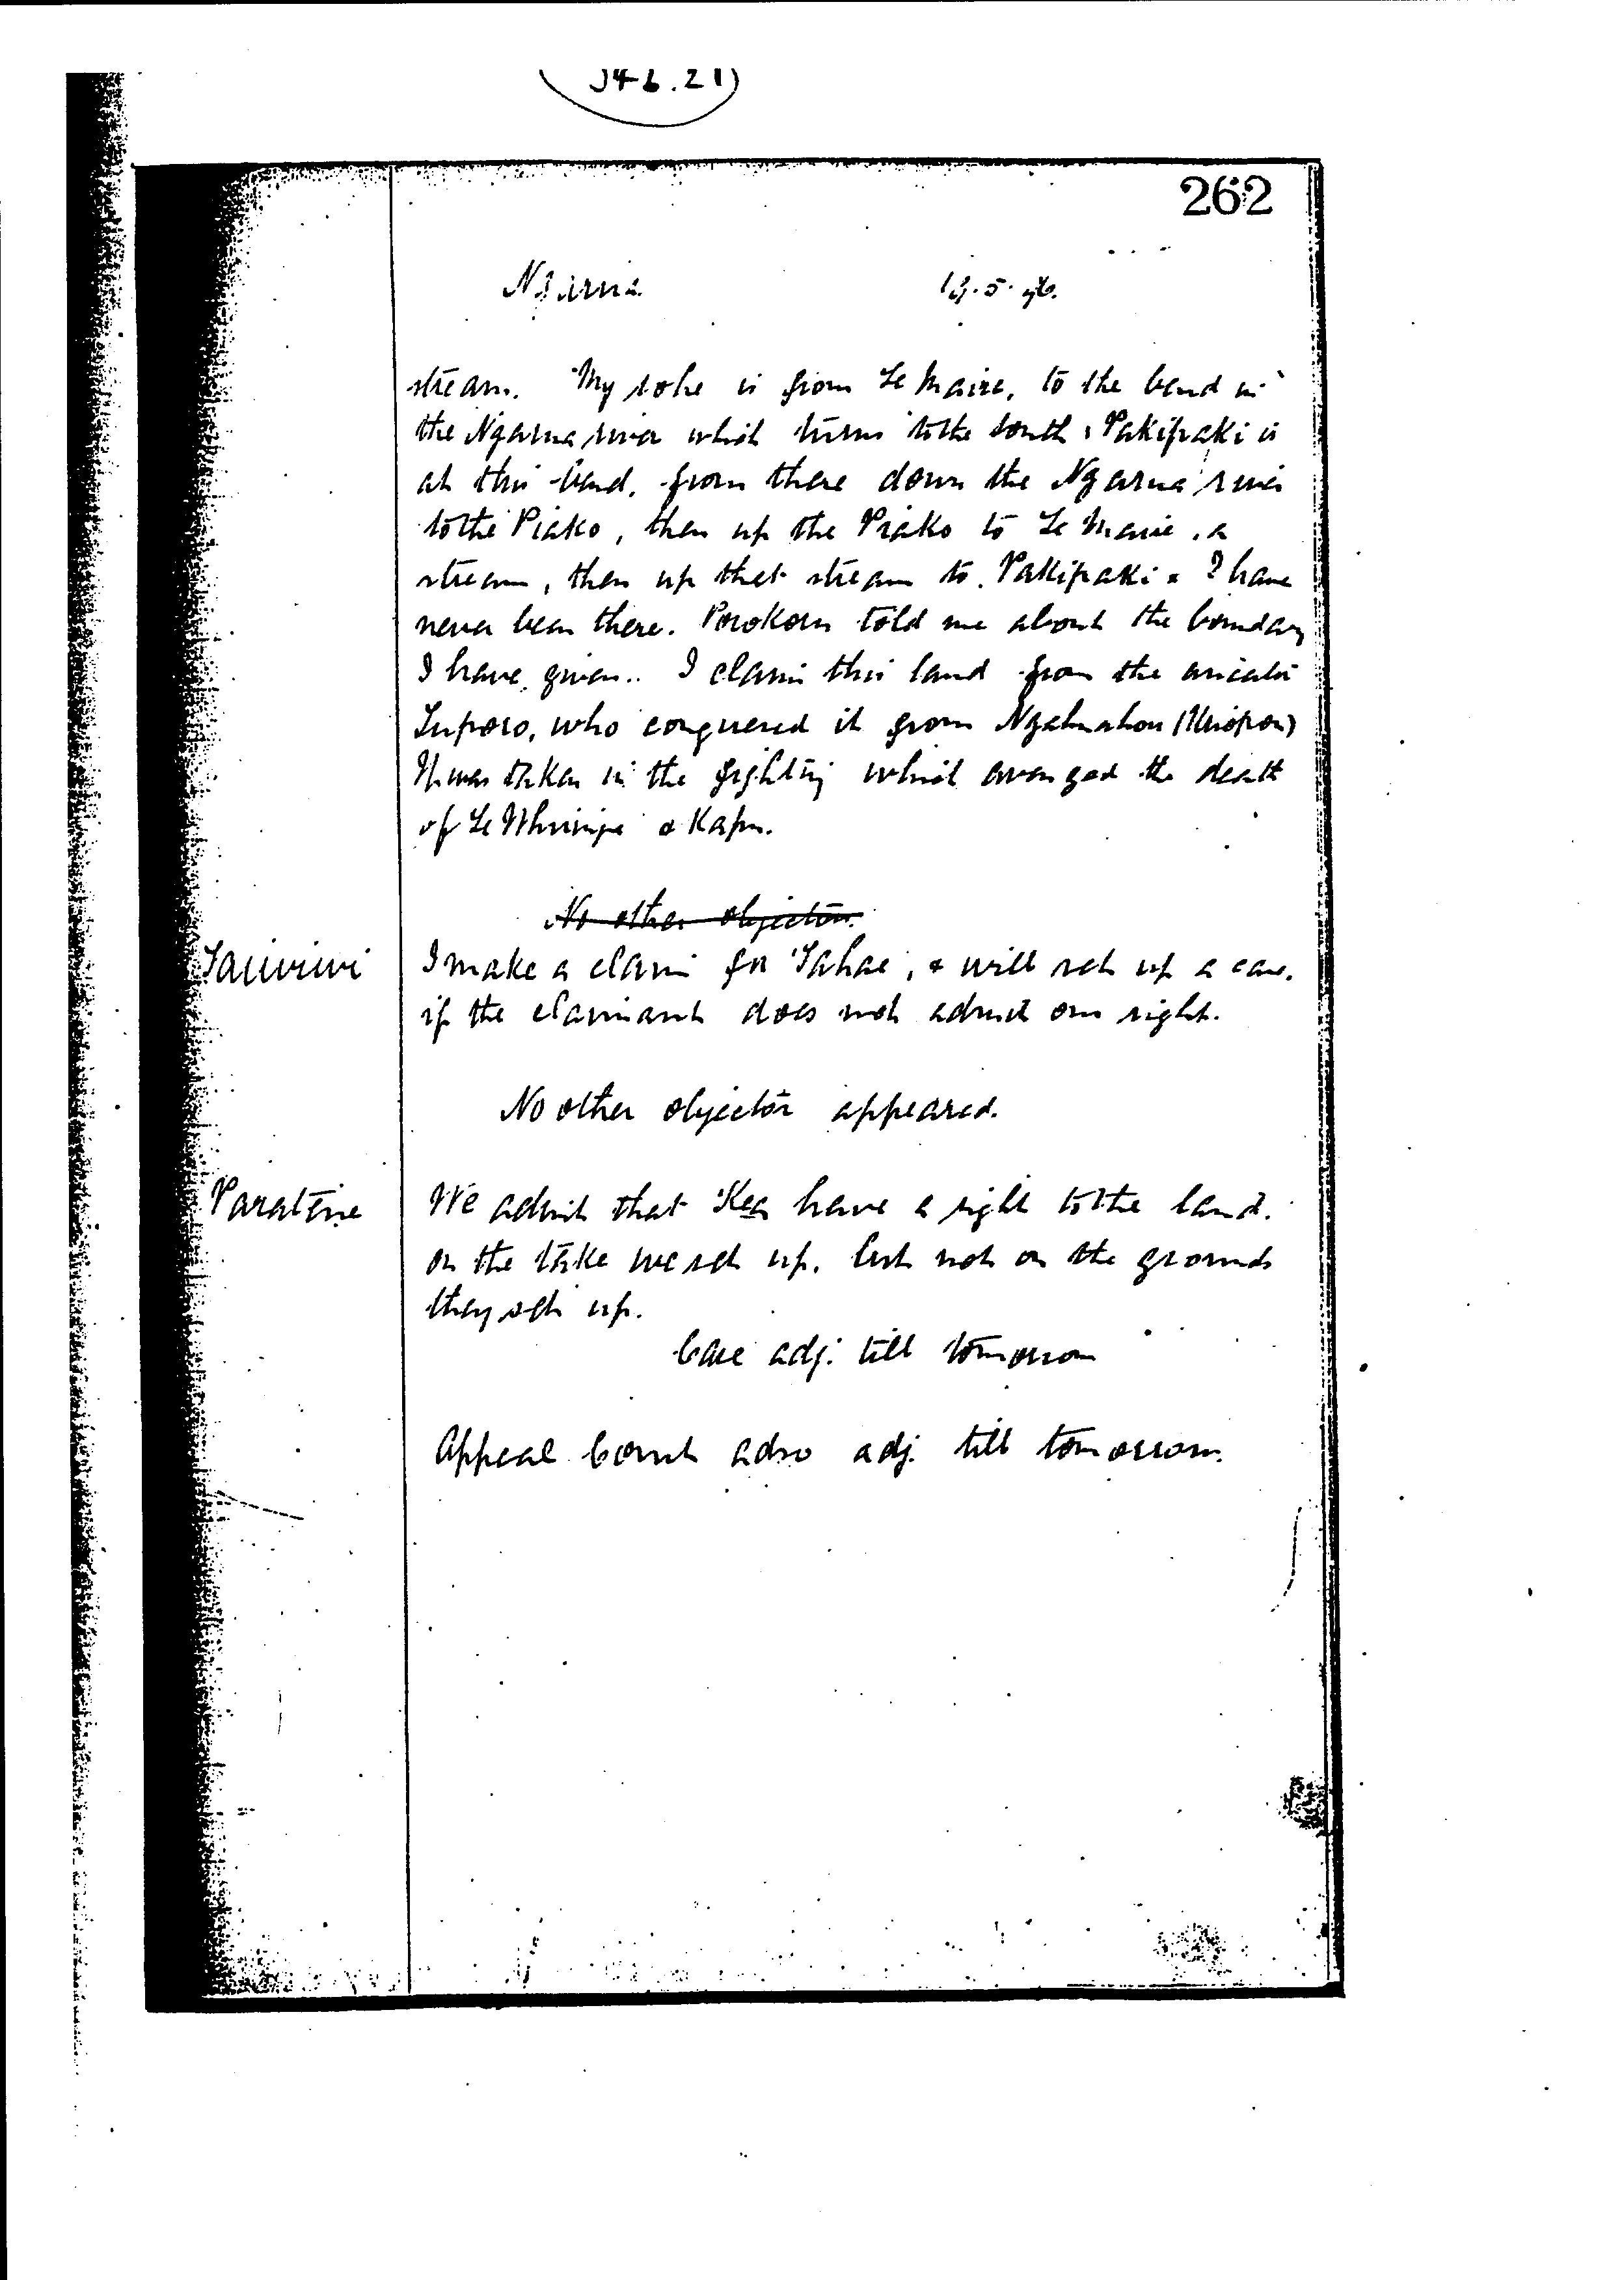 262
Ngarua. 13.5.96.
stream. My rohe is from Te Maire, to the bend in
the Ngarua river which turns to the south, Pakipaki is
at this bend, from there down the Ngarua river
to the Piako, then up the Piako to Te Maire, a
stream, then up that stream to Pakipaki. I have
never been there. Porokoru told me about the boundary
I have given. I claim this land from the ancestor
Tuporo, who conquered it from Ngahuahou (Uriopou)
It was taken in the fighting which avenged the death
of Te Whiringa & Kapu.
No other objector.
Tauwiwi I make a claim for Tahae, & will set up a case,
if the claimant does not admit our right.
No other objector appeared.
Paratene We admit that Kea have a right to the land.
on the take we set up, but not on the grounds
they set up.
Case adj. till tomorrow
Appeal Court also adj. till tomorrow.